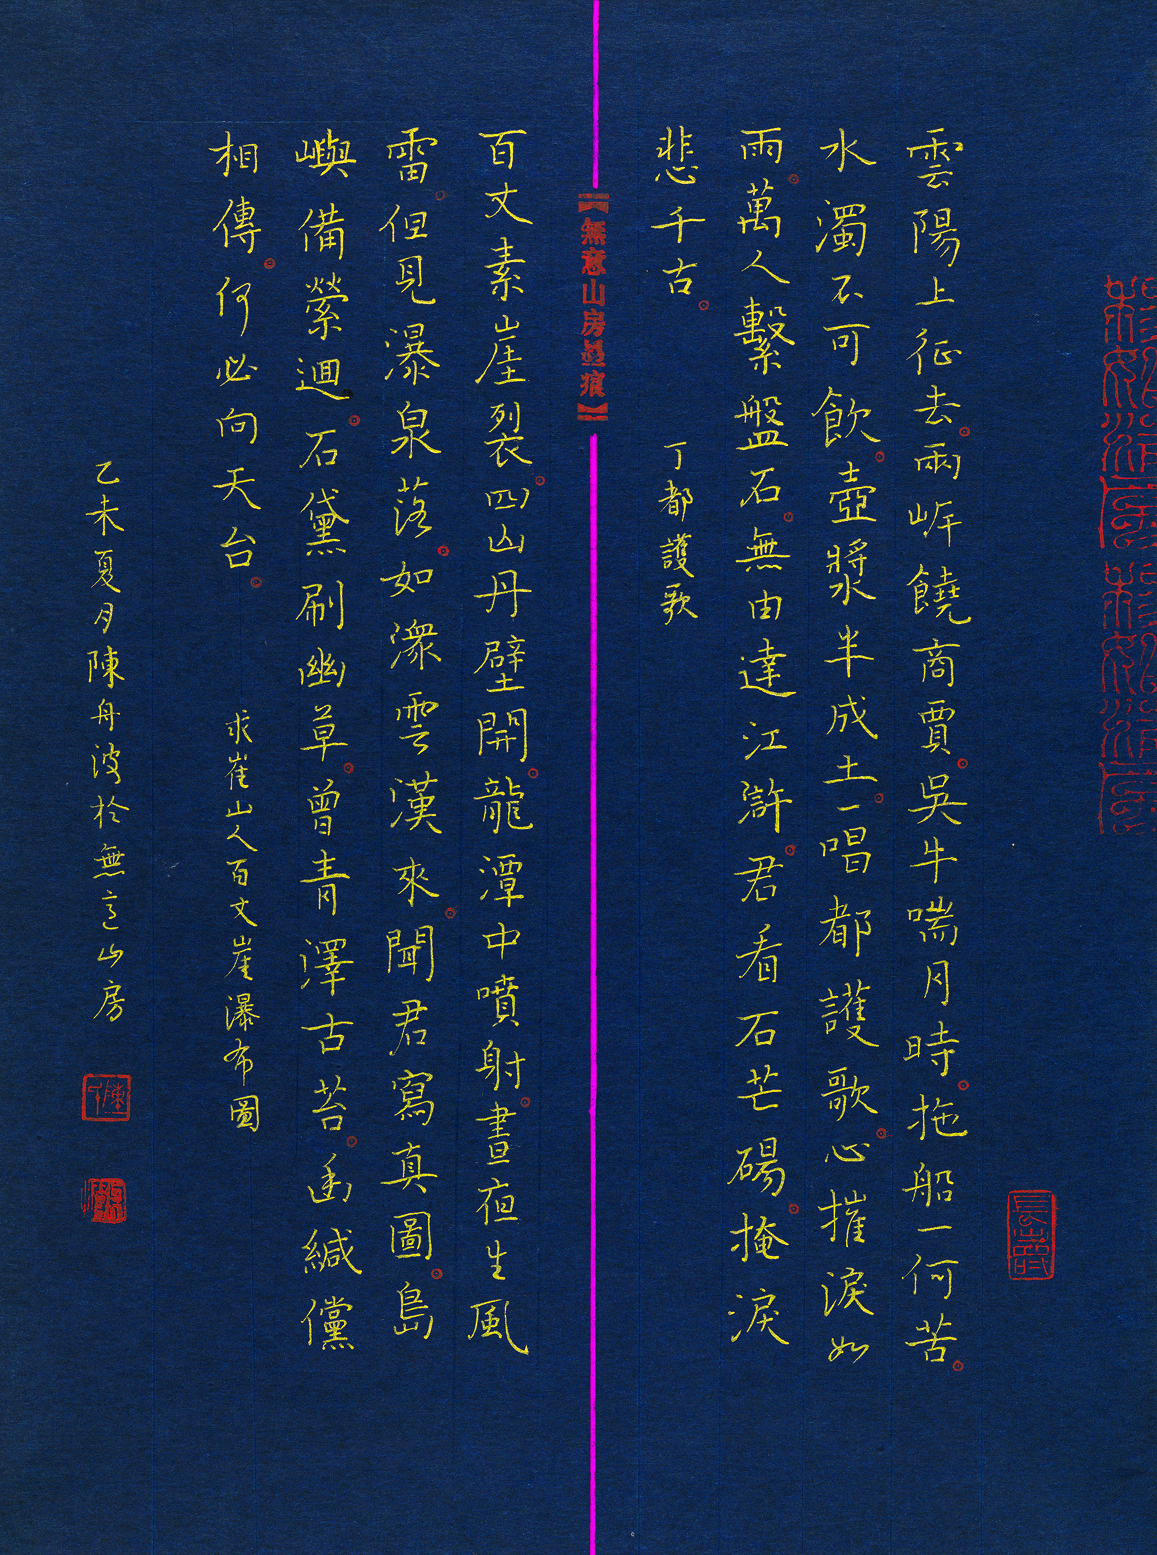 雲陽上征去兩岸饒商賈吳牛喘月時拖船一何苦
水濁不可飲壺漿半成土一唱都護歌心摧淚如
雨萬人繫盤石無由達江滸君看石芒碭掩淚
悲千古
丁都護歌
【無意山房 痕】
百丈素崖裂四山丹壁開龍潭中噴射晝夜生風
雷但見瀑泉落如潨雲漢來聞君寫真圖島
嶼備縈迴石黛刷幽草曾青澤古苔幽緘儻
相傳何必向天台
求崔山人百丈崖瀑布圖
乙未夏月陳舟波於無意山房